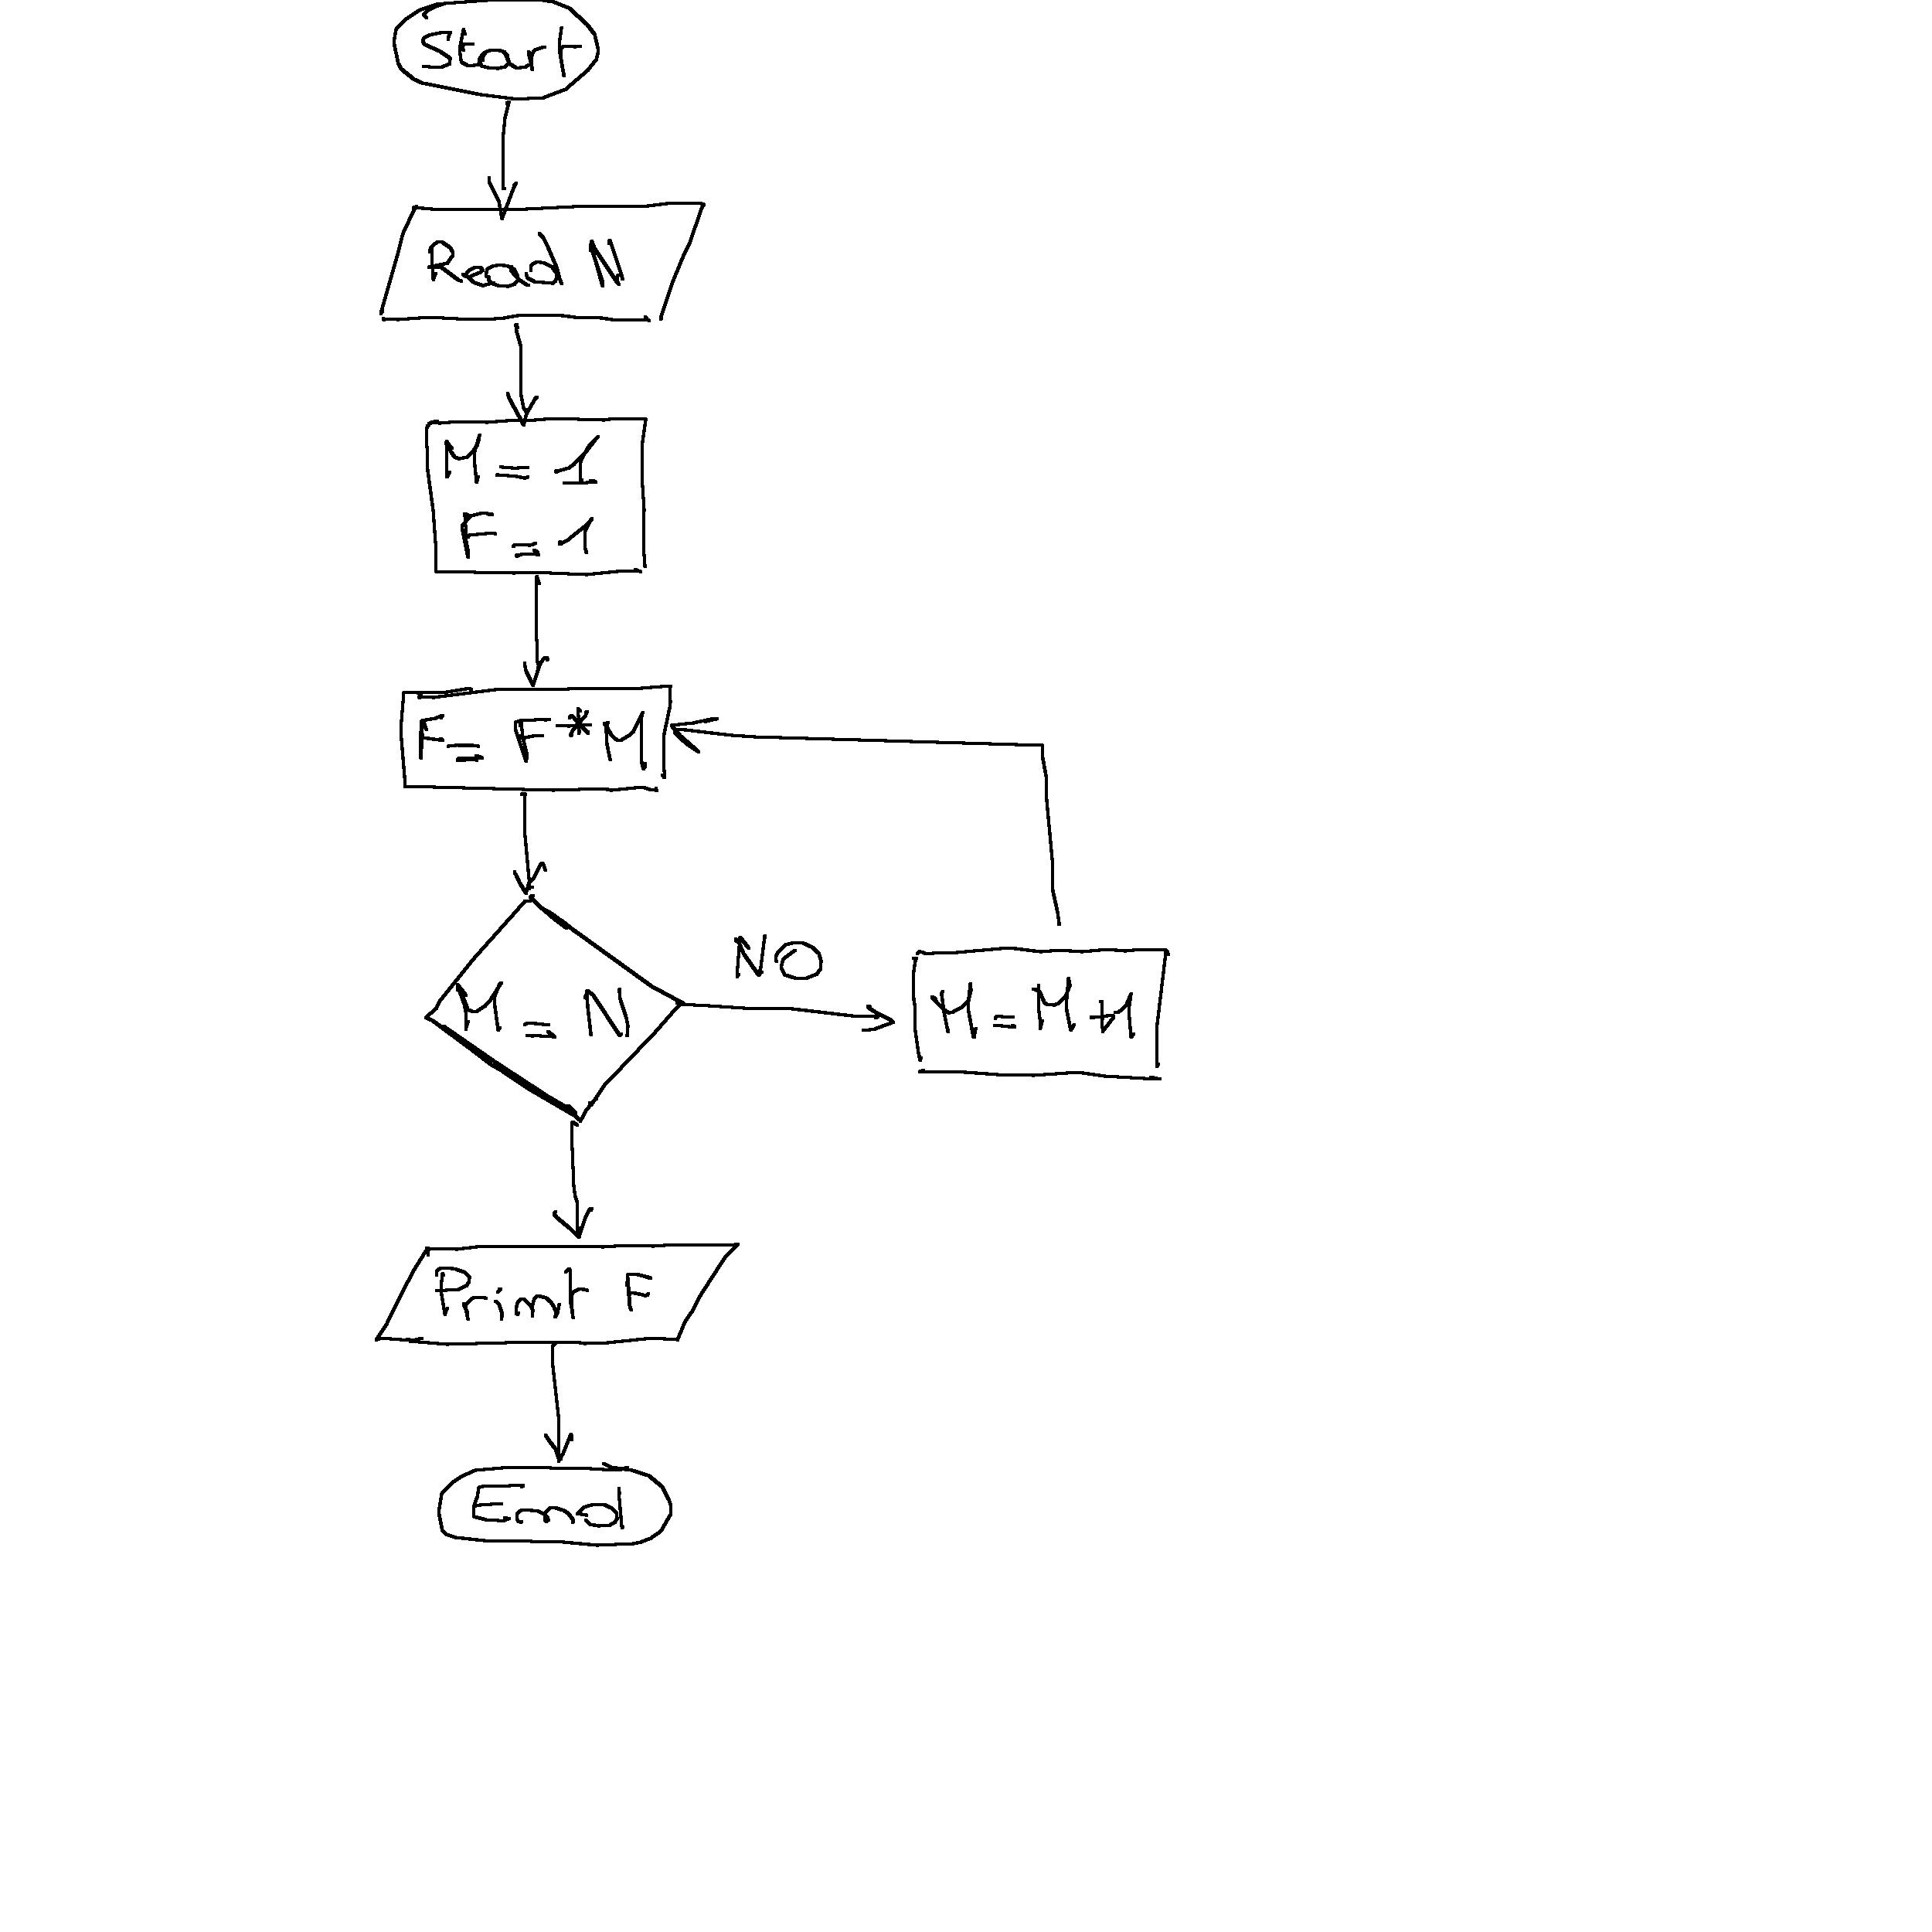 Start
Read N
M = 1
F = 1
F = F * M
M = N
NO
M = M + 1
Print F
End